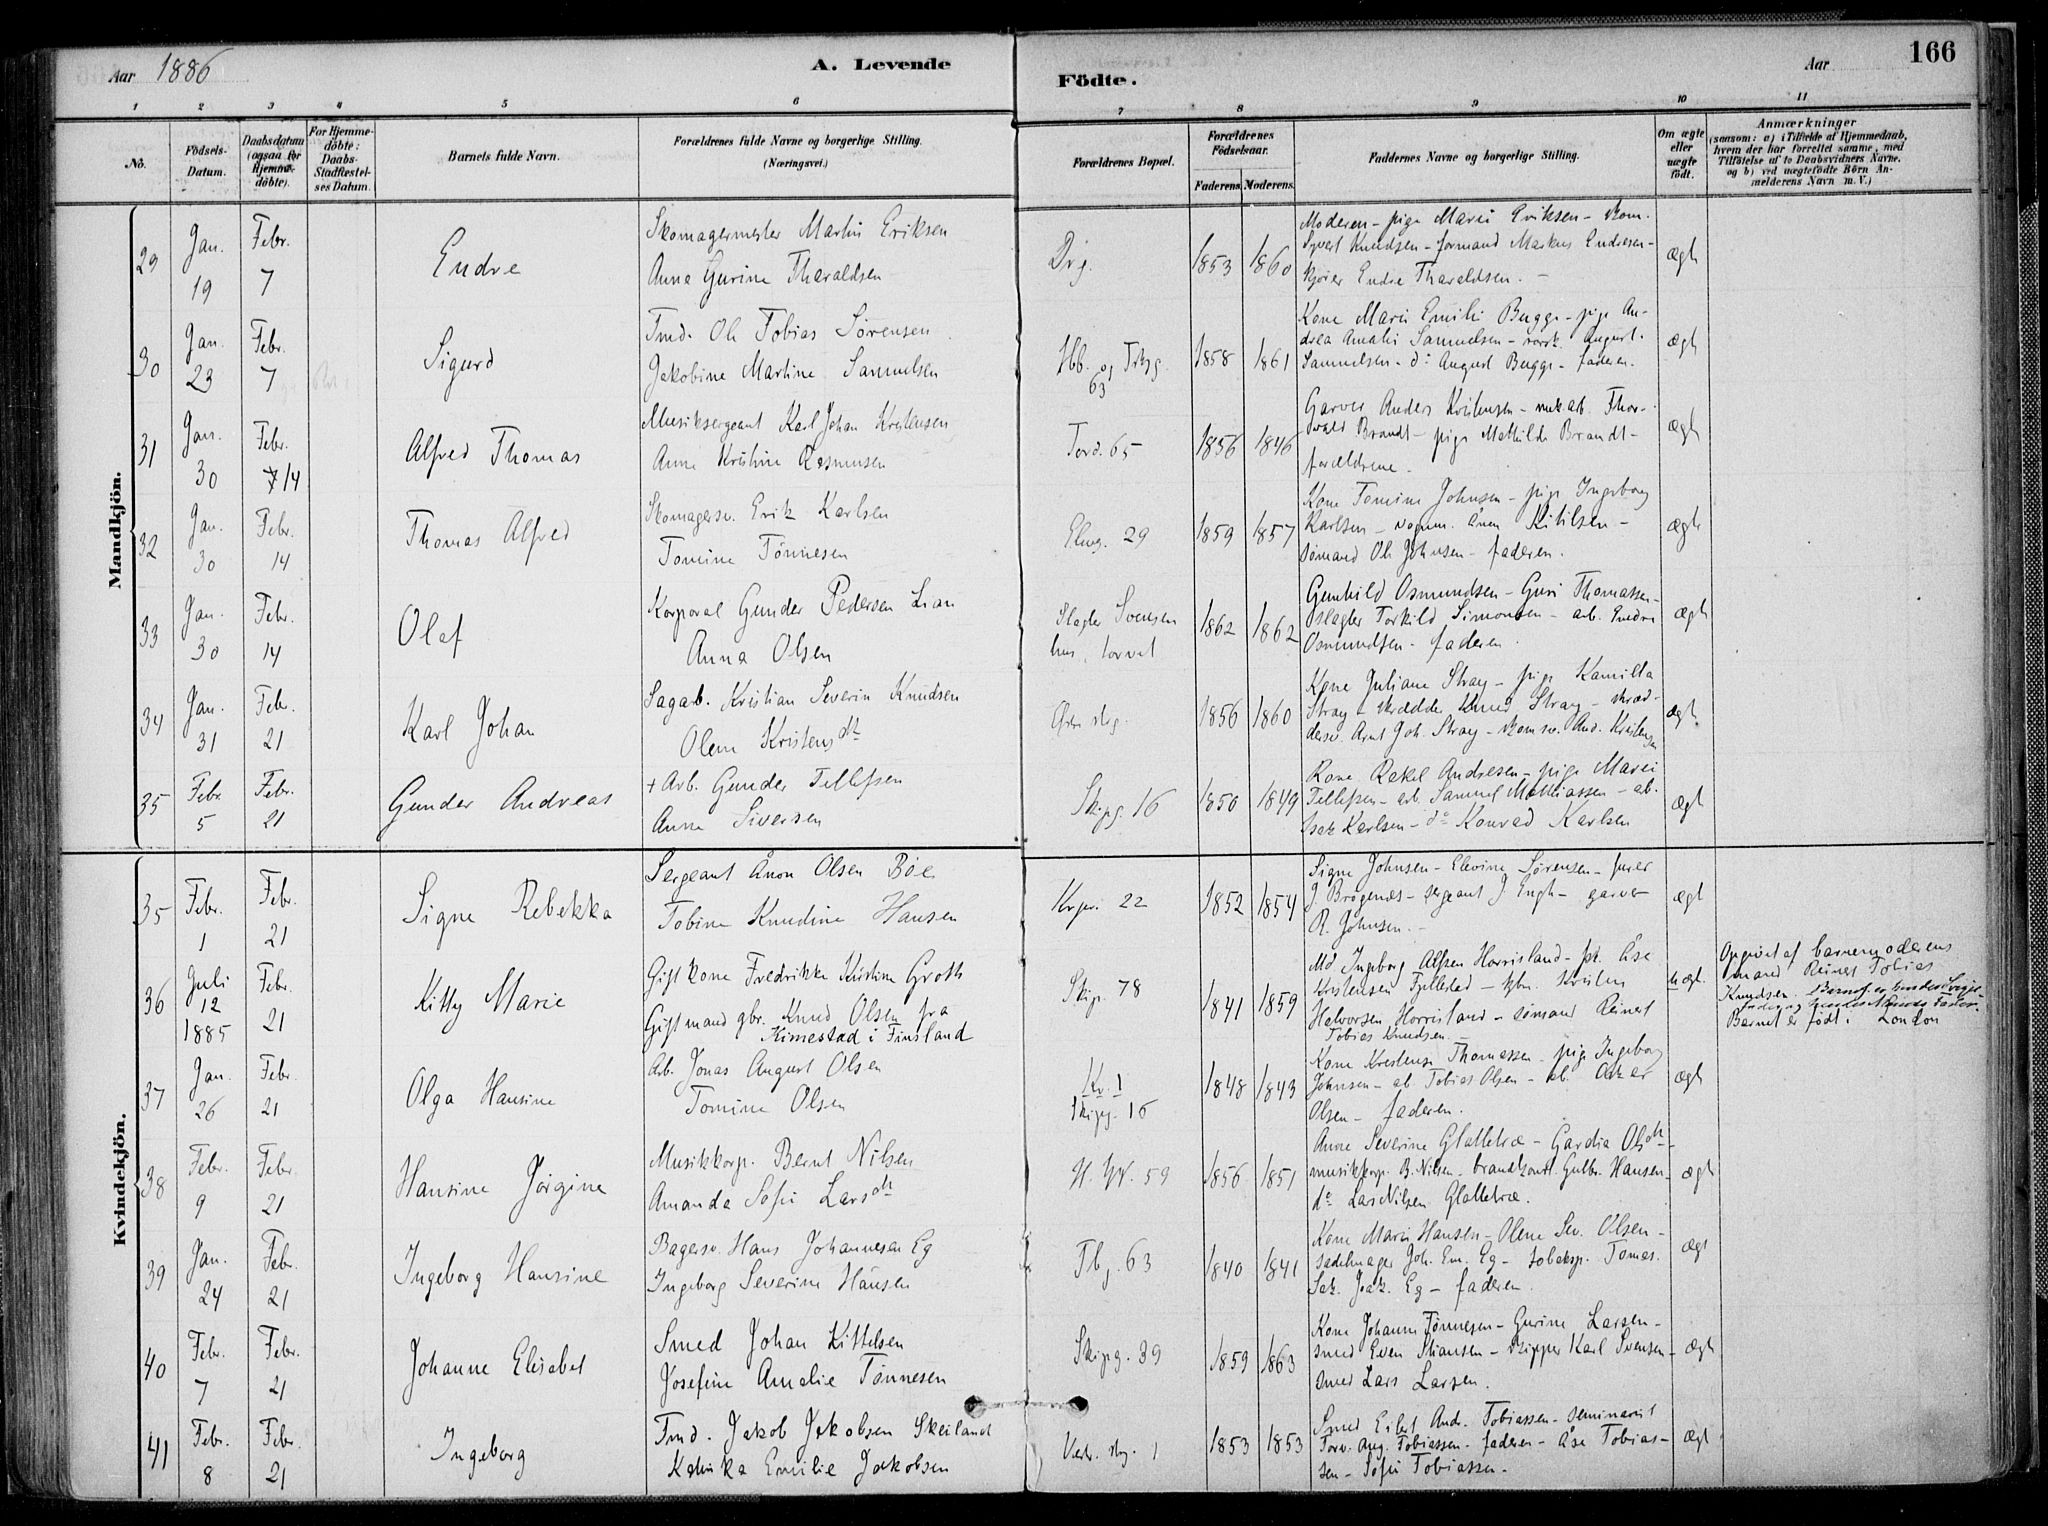 Aar 1886
A. Levende
Födte.
Aar
166
1 2 3 4 5 6 7 8 9 10 11
No.
Födsels-
Datum.
Daabsdatum
(ogsaa for
Hjemme-
döbte).
For Hjemme-
döbte:
Daabs-
Stadfæstel-
ses Datum.
Barnets fulde Navn.
Forældrenes fulde Navne og borgerlige Stilling.
(Næringsvei.)
Forældrenes Bopæl.
Forældrenes
Födselsaar.
Faderens. Moderens.
Faddernes Navne og borgerlige Stilling.
Om ægte
eller
uægte
födt.
Anmærkninger
(saasom: a) i Tilfælde af Hjemmedaab,
hvem der har forrettet samme, med
Tilföielse af to Daabsvidners Navne,
og b) ved uægtefödte Börn An-
melderens Navn m. V.)
Mandkjön.
29
Jan. 19
Febr. 7
Endre
Skomagermester Martin Eriksen
Anna Gurine Tharaldsen
Drg.
1853 1860
Moderen - pige Marie Eriksen - skom.
Syvert Knudsen - formand Markus Endresen -
Endre Tharaldsen. -
ægte
30
Jan. 23
Febr. 7
Sigurd
Tmd. Ole Tobias Sörensen
Jakobine Martine Samuelsen
63
1858 1861
Kone Marie Emilie Bugge - pige An-
drea Amalie Samuelsen - August
Samuelsen - do August Bugge - faderen.
ægte
31
Jan. 30
Febr. 7 14
Alfred Thomas
Musiksergeant Karl Johan Kristensen
Anne Kristine Rasmusen
Tord. 65
1856 1846
Garver Anders Kristensen - Thor-
vald Brandt - pige Mathilde Brandt -
forældrene.
ægte
32
Jan. 30
Febr. 14
Thomas Alfred
Skomagersv. Erik Karlsen
Tomine Tönnesen
Elvg. 29
1859 1857
Kone Tomine Johnsen - pige Ingeborg
Karlsen - Kitilsen -
sömand Ole Johnsen - faderen.
ægte
33
Jan. 30
Febr. 14
Olaf
Korporal Gunder Pedersen Lian
Anna Olsen
Slagter Svensen
hus, torvet
1862 1862
Gunhild Osmundsen - Guri Thomassen -
slagter Torkild Simonsen - arb. Endre
Osmundsen - faderen.
ægte
34
Jan. 31
Febr. 21
Karl Johan
Sagarb. Kristian Severin Knudsen
Olene Kristensdtr
Övre strg.
1856 1860
Kone Juliane Stray - pige Kamilla
Stray - skrædder Knud Stray - skræd-
dersv. Arnt Joh. Stray - skom sv. And. Kristensen
ægte
35
Febr. 5
Febr. 21
Gunder Andreas
+ Arb. Gunder Tellefsen
Anne Siversen
Skipg. 16
1850 1849
Kone Rakel Andresen - pige Marei
Tellefsen - arb. Samuel Mathiassen - ab.
Isak Karlsen - do Konrad Karlsen
ægte
Kvindekjön.
35
Febr. 1
Febr. 21
Signe Rebekka
Sergeant Ånon Olsen Böe
Tobine Knudine Hansen
Krpr. 22
1852 1854
Signe Johnsen - Elevine Sörensen - furer
J Brögenes - sergeant J Engh - garver
R. Johnsen. -
ægte
36
Juli 12 1885
Febr. 21
Kitty Marie
Gift kone Fredrikke Kristine Groth
Gift mand gbr. Knud Olsen fra
Kimestad i Finsland
Skip. 78
1841 1859
Md Ingeborg Alfsen Horrisland - pk. Åse
Kristensen Fjellestad - Kristen
Halvorsen Horrisland - sömand Reinert
Tobias Knudsen. -
uægte.
Opgivet af barnemoderens
mand Reinert Tobias
Knudsen.
Barnet er födt i London
37
Jan. 26
Febr. 21
Olga Hansine
Arb. Jonas August Olsen
Tomine Olsen
Kv. 1
Skipg. 16
1848 1843
Kone Kristense Thomassen - pige Ingeborg
Johnsen - ab. Tobias Olsen - ab. Oskar
Olsen - faderen.
ægte
38
Febr. 9
Febr. 21
Hansine Jörgine
Musikkorp. Bernt Nilsen
Amanda Sofie Larsdtr
59
1856 1851
Anne Severine Glattetræ - Gardia Olsdtr -
musikkorp. B. Nilsen - brandkonst. Gulbr. Hansen -
do Lars Nilsen Glattetræ.
ægte
39
Jan. 24
Febr. 21
Ingeborg Hansine
Bagersv. Hans Johannesen Eg
Ingeborg Severine Hansen
Tbg. 63
1840 1841
Kone Marie Hansen - Olene Sev. Olsen -
sadelmager Joh. Em. Eg - tobaksp. Tomas.
Isak. Eg - faderen.
ægte
40
Febr. 7
Febr. 21
Johanne Elisabet
Smed Johan Kittelsen
Josefine Amalie Tönnesen
Skipg. 39
1859 1863
Kone Johanne Tönnesen - Gurine Larsen -
smed Even Stiansen - skipper Karl Svensen -
smed Lars Larsen.
ægte
41
Febr. 8
Febr. 21
Ingeborg
Tmd. Jakob Jakobsen Skeiland
Katinka Emilie Jakobsen
Vestr. strg. 1
1853 1853
Smed Eilert Andr. Tobiassen - seminarist
Torv. Aug. Tobiassen - faderen - Åse Tobias-
sen - Sofie Tobiassen -
ægte